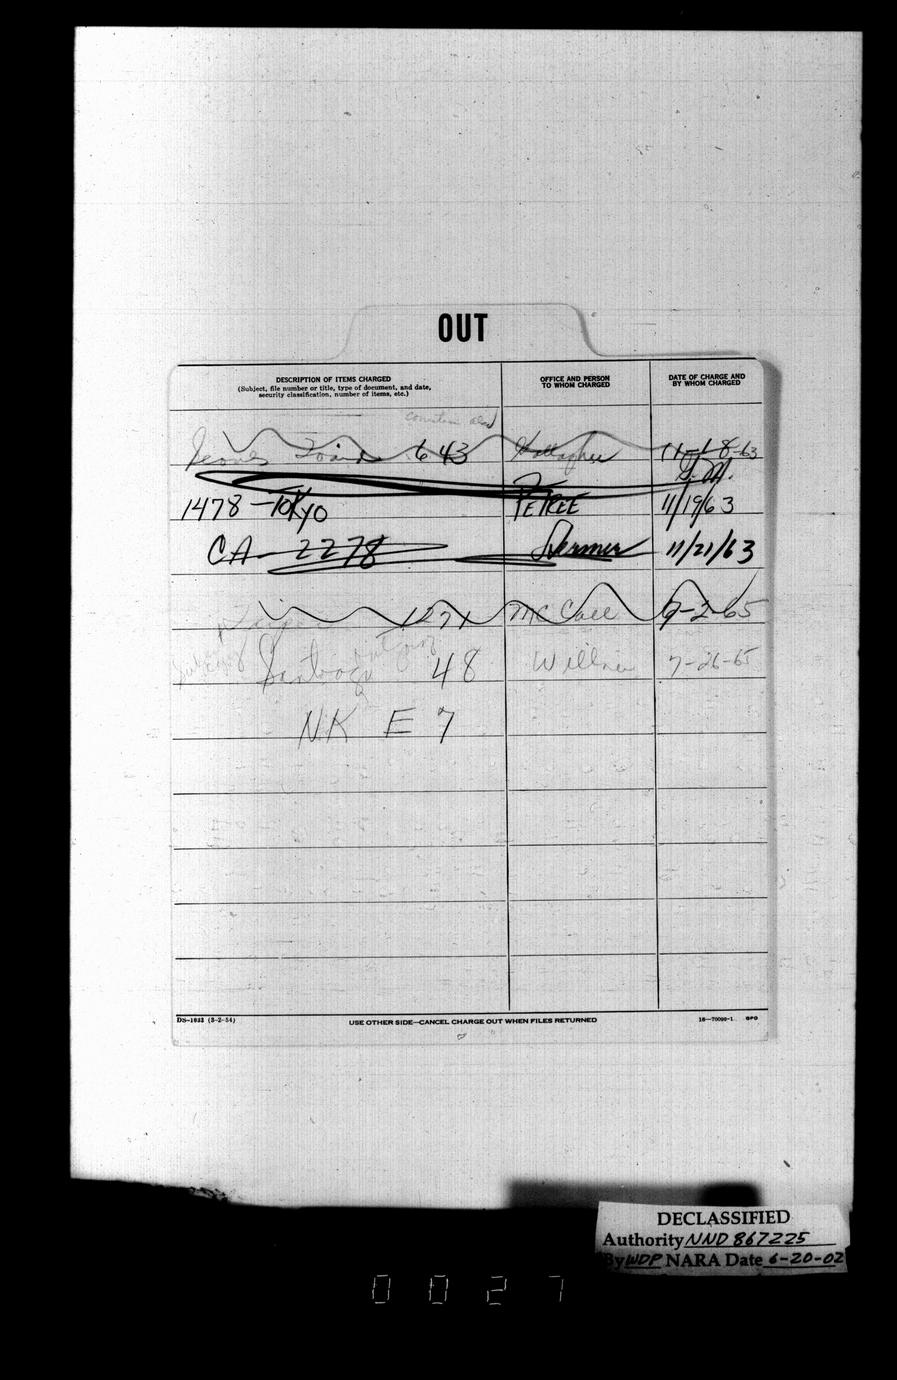 OUT
DESCRIPTION OF ITEMS CHARGED
(Subject, file number or title, type of document, and date,
security classification, number of items, etc.)
OFFICE AND PERSON
TO WHOM CHARGED
DATE OF CHARGE AND
BY WHOM CHARGED
643 Gallagher 11-18-63
G.M.
1478 - TOKYO PETREE 11/19/63
CA - 2278 11/21/63
1271 McCall 7-2-65
Santiago 48 7-26-65
NK E 7
DS-1033 (3-2-54)
USE OTHER SIDE—CANCEL CHARGE OUT WHEN FILES RETURNED
16—70090-1 GPO
DECLASSIFIED
Authority NND 867225
By WDP NARA Date 6-20-02
0027